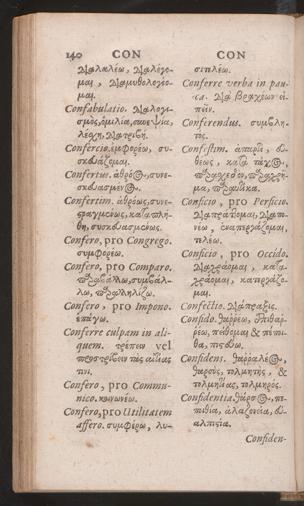 140 CON CON
διαλαλέω, διαλέγο-
μαι, διαμυθολογέο-
μαι.
Confabulatio. διαλογι-
σμὸς, ὁμιλία, συνεψία,
λέχη, διατριβή.
Confercio. ἐμφορέω, συ-
σκδυάζομαι.
Confertus. ἀθρόος, συνε-
σκδυασμένος.
Confertim. ἀθρόως, συνε-
σπαγμένως, κατὰ πλή-
θη, συσκδυασμένως.
Confero, pro Congrego.
συμφορέω.
Confero, pro Comparo.
παραβάλλω, συμβάλ-
λω, παραλληλίζω.
Confero, pro Impono.
ἐπάγω.
Conferre culpam in ali-
quem. τρέπειν vel
προστρίβειν τὰς αἰτίας
τινι.
Confero, pro Commu-
nico. κοινωνέω.
Confero, pro Utilitatem
affero. συμφέρω, λυ-
σιτελέω.
Conferre verba in pau-
ca. διὰ βραχέων εἰ-
πεῖν.
Conferendus. συμβλη-
τὸς.
Confestim. ἀπαρτὶ, εὐ-
θέως, κατὰ τάχος,
παραχεδὸν, παραχρῆ-
μα, παραυτίκα.
Conficio, pro Perficio.
διαπράττομαι, δια-
νέω, ἐναπεργάζομαι,
τελέω.
Conficio, pro Occido.
διαχράομαι, κατα-
χράομαι, κατεργάζο-
μαι.
Confectio. διάπραξις.
Confido. θαρρέω, ἐπιθαρ-
ρέω, πέθομαι & πέποι-
θα, πιστεύω.
Confidens. θαρραλέος,
θαρσὺς, τολμητὴς, &
τολμηίας, τολμηρός.
Confidentia. θάρσος, πε-
ποιθία, ἀλαζονεία, &
αλπισία.
Confiden-